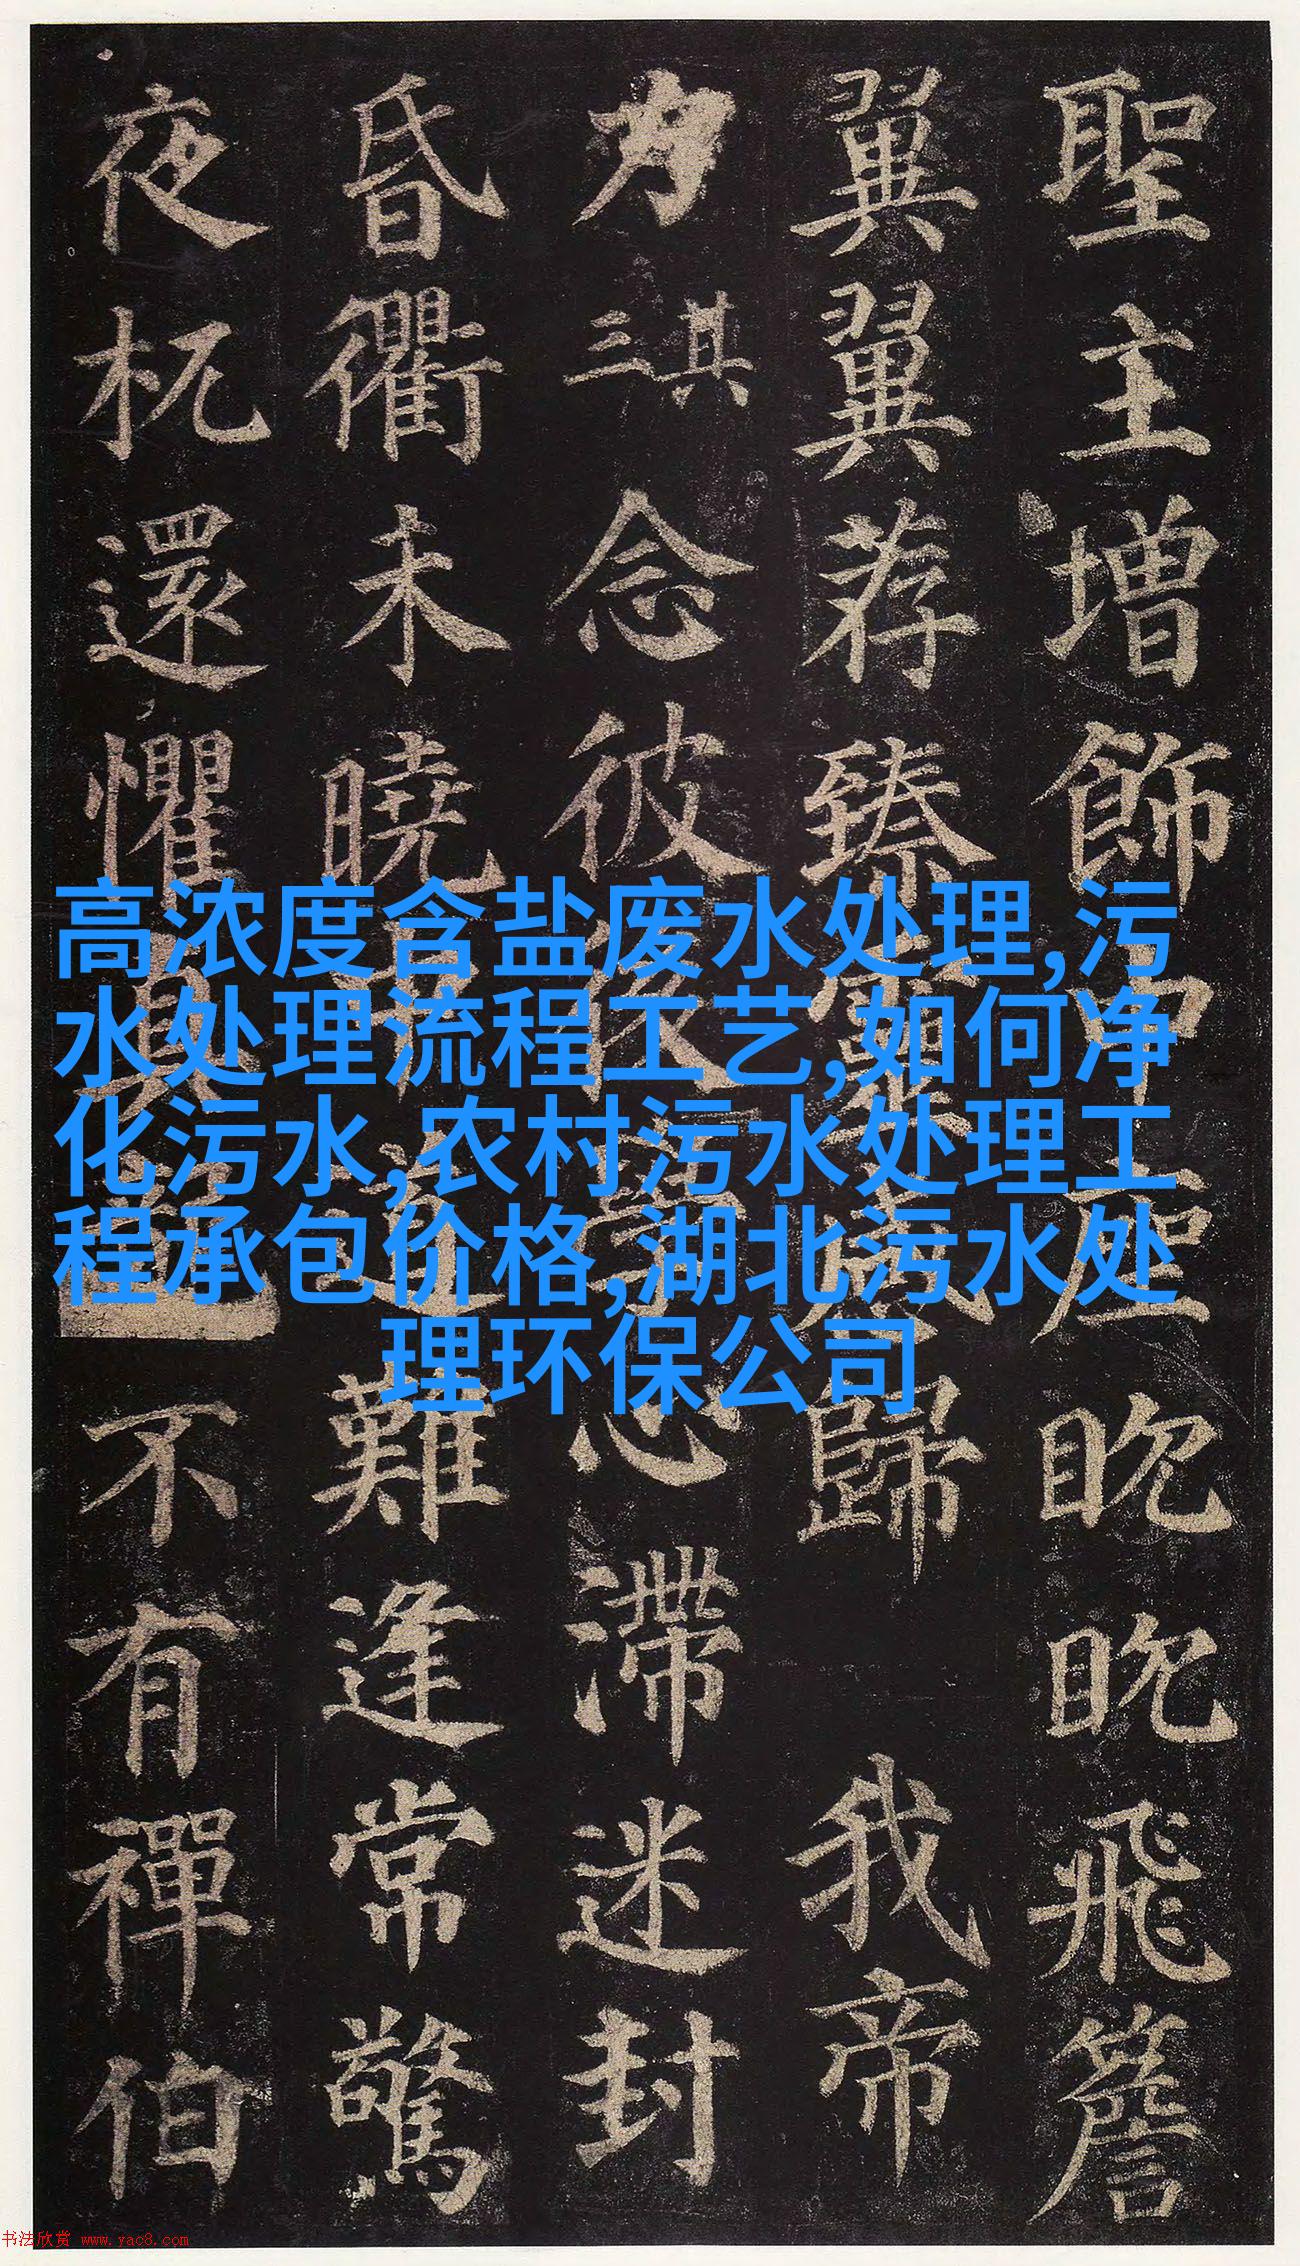 聖主增飾中座眈眈飛簷
翼翼荐臻靈感歸我帝
力其三念彼後學心滯迷封
昏衢未曉中道難逢常驚
夜杌還懼真龍不有禪伯
高浓度含盐废水处理,污
水处理流程工艺,如何净
化污水,农村污水处理工
程承包价格,湖北污水处
理环保公司
书法欣赏 www.yac8.com